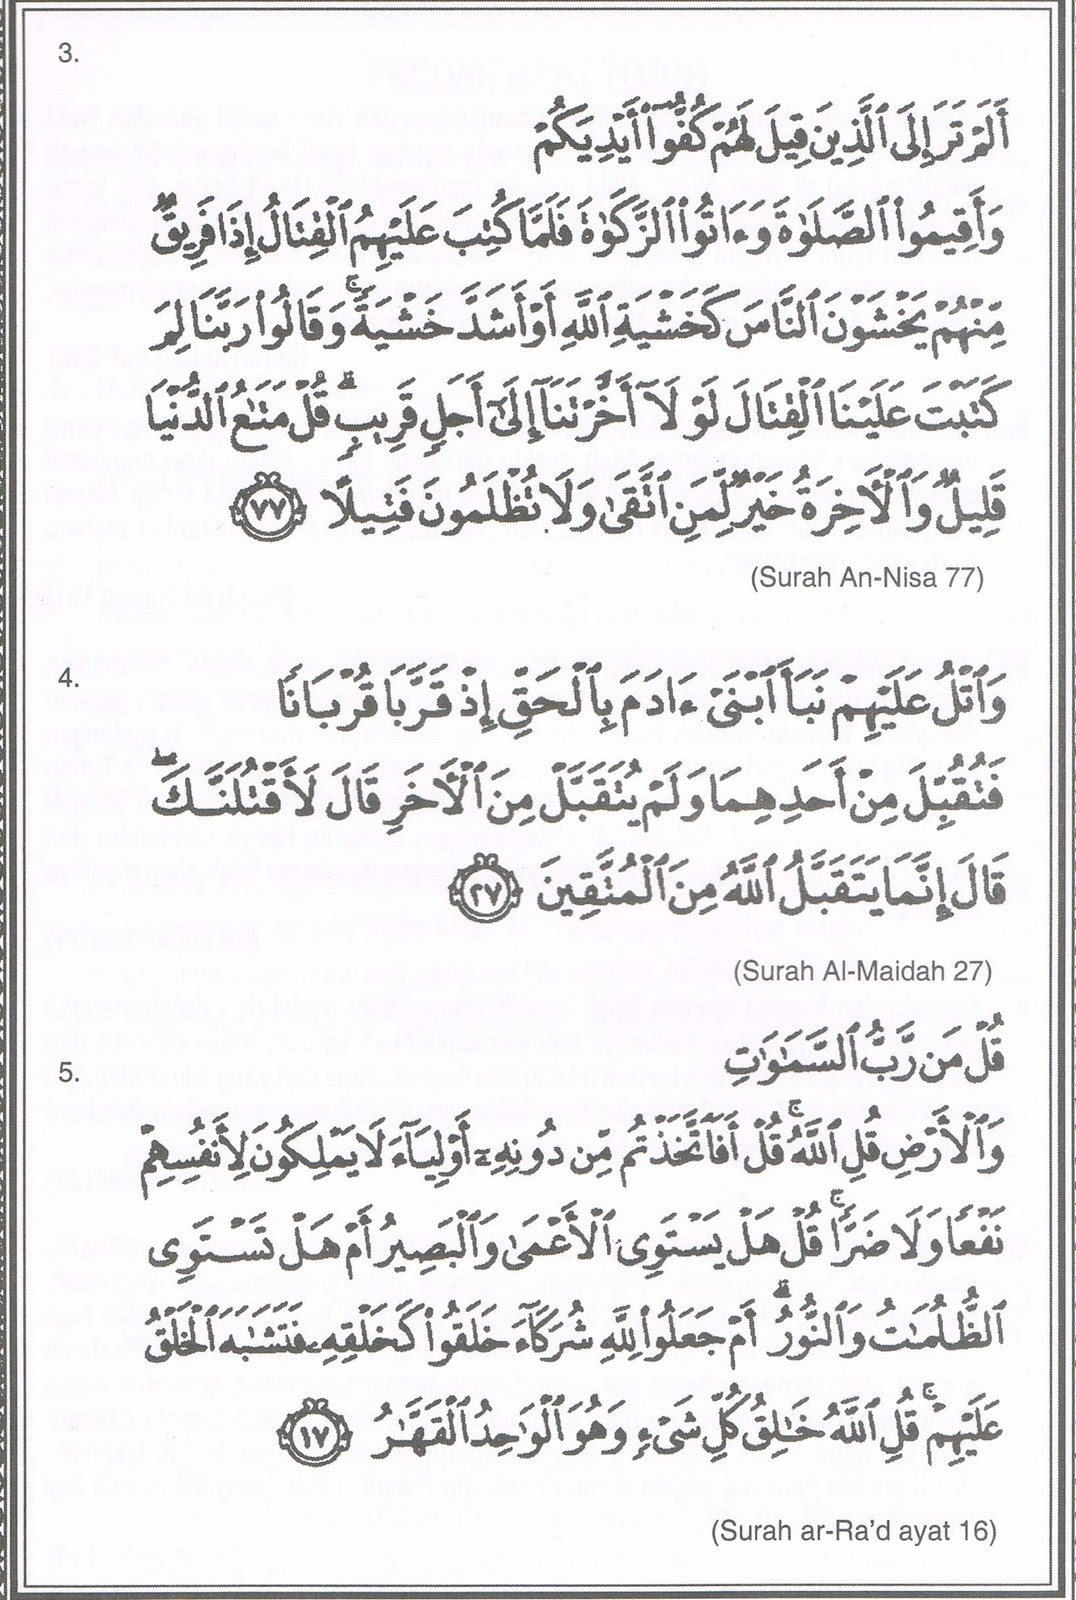 3.
أَلَمْ تَرَ إِلَى ٱلَّذِينَ قِيلَ لَهُمْ كُفُّوٓا۟ أَيْدِيَكُمْ
وَأَقِيمُوا۟ ٱلصَّلَوٰةَ وَءَاتُوا۟ ٱلزَّكَوٰةَ فَلَمَّا كُتِبَ عَلَيْهِمُ ٱلْقِتَالُ إِذَا فَرِيقٌ
مِّنْهُمْ يَخْشَوْنَ ٱلنَّاسَ كَخَشْيَةِ ٱللَّهِ أَوْ أَشَدَّ خَشْيَةً ۚ وَقَالُوا۟ رَبَّنَا لِمَ
كَتَبْتَ عَلَيْنَا ٱلْقِتَالَ لَوْلَآ أَخَّرْتَنَآ إِلَىٰٓ أَجَلٍ قَرِيبٍ ۗ قُلْ مَتَٰعُ ٱلدُّنْيَا
قَلِيلٌ وَٱلْءَاخِرَةُ خَيْرٌ لِّمَنِ ٱتَّقَىٰ وَلَا تُظْلَمُونَ فَتِيلًا ٧٧
(Surah An-Nisa 77)
4.
وَٱتْلُ عَلَيْهِمْ نَبَأَ ٱبْنَىْ ءَادَمَ بِٱلْحَقِّ إِذْ قَرَّبَا قُرْبَانًا
فَتُقُبِّلَ مِنْ أَحَدِهِمَا وَلَمْ يُتَقَبَّلْ مِنَ ٱلْءَاخَرِ قَالَ لَأَقْتُلَنَّكَ ۖ
قَالَ إِنَّمَا يَتَقَبَّلُ ٱللَّهُ مِنَ ٱلْمُتَّقِينَ ٢٧
(Surah Al-Maidah 27)
5.
قُلْ مَن رَّبُّ ٱلسَّمَٰوَٰتِ
وَٱلْأَرْضِ قُلِ ٱللَّهُ ۚ قُلْ أَفَٱتَّخَذْتُم مِّن دُونِهِۦٓ أَوْلِيَآءَ لَا يَمْلِكُونَ لِأَنفُسِهِمْ
نَفْعًا وَلَا ضَرًّا ۚ قُلْ هَلْ يَسْتَوِى ٱلْأَعْمَىٰ وَٱلْبَصِيرُ أَمْ هَلْ تَسْتَوِى
ٱلظُّلُمَٰتُ وَٱلنُّورُ ۗ أَمْ جَعَلُوا۟ لِلَّهِ شُرَكَآءَ خَلَقُوا۟ كَخَلْقِهِۦ فَتَشَٰبَهَ ٱلْخَلْقُ
عَلَيْهِمْ ۚ قُلِ ٱللَّهُ خَٰلِقُ كُلِّ شَىْءٍ وَهُوَ ٱلْوَٰحِدُ ٱلْقَهَّٰرُ ١٧
(Surah ar-Ra'd ayat 16)